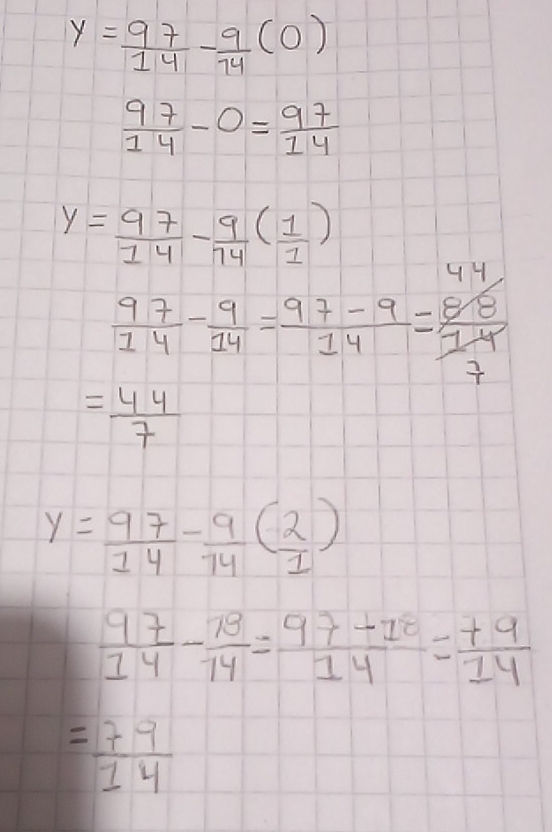 y = 97/14 - 9/14 (0)
97/14 - 0 = 97/14
y = 97/14 - 9/14 (1/1)
97/14 - 9/14 = 97 - 9/14 = 88/14 44 7
= 44/7
y = 97/14 - 9/14 (2/1)
97/14 - 18/14 = 97 - 18/14 = 79/14
= 79/14